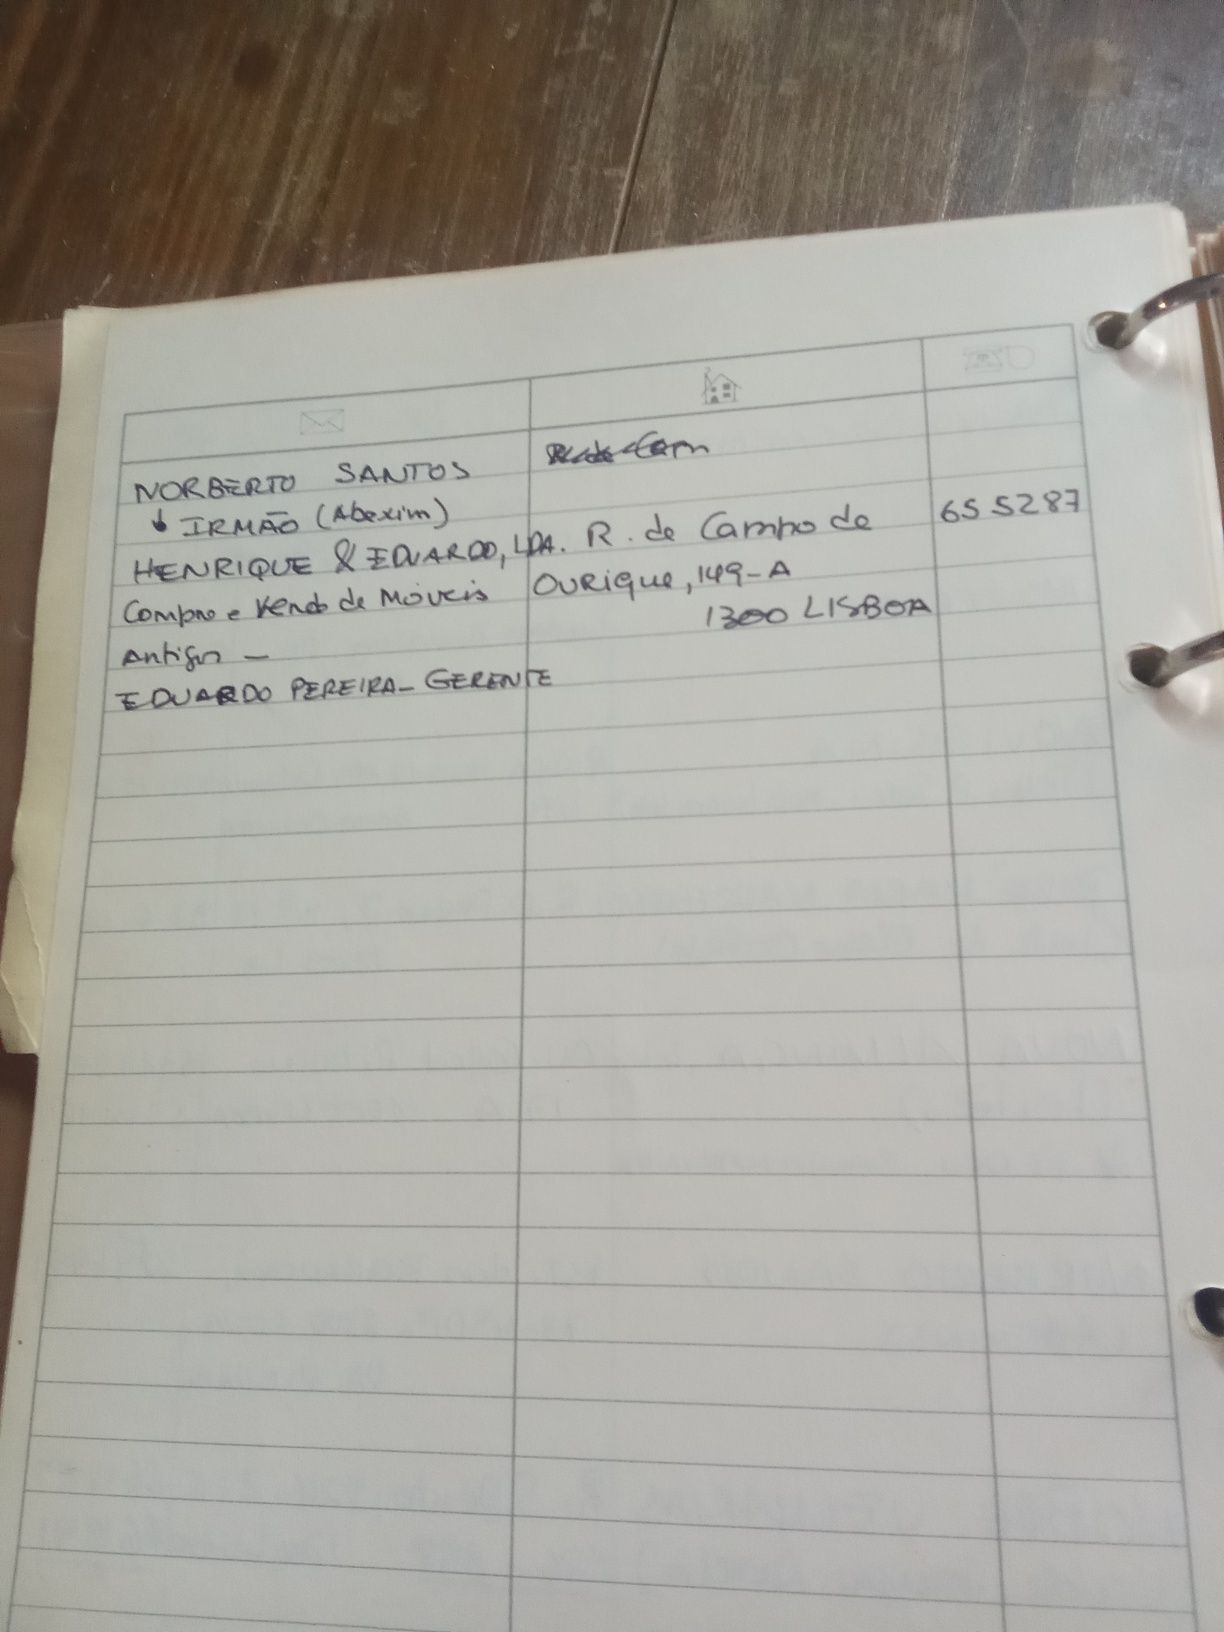 NORBERTO SANTOS
↓ IRMÃO (Abexim)
HENRIQUE & EDUARDO, LDA. R. de Campo de 65 5287
Compra e Venda de Móveis OURique, 149-A
1300 LISBOA
Antigos -
EDUARDO PEREIRA - GERENTE